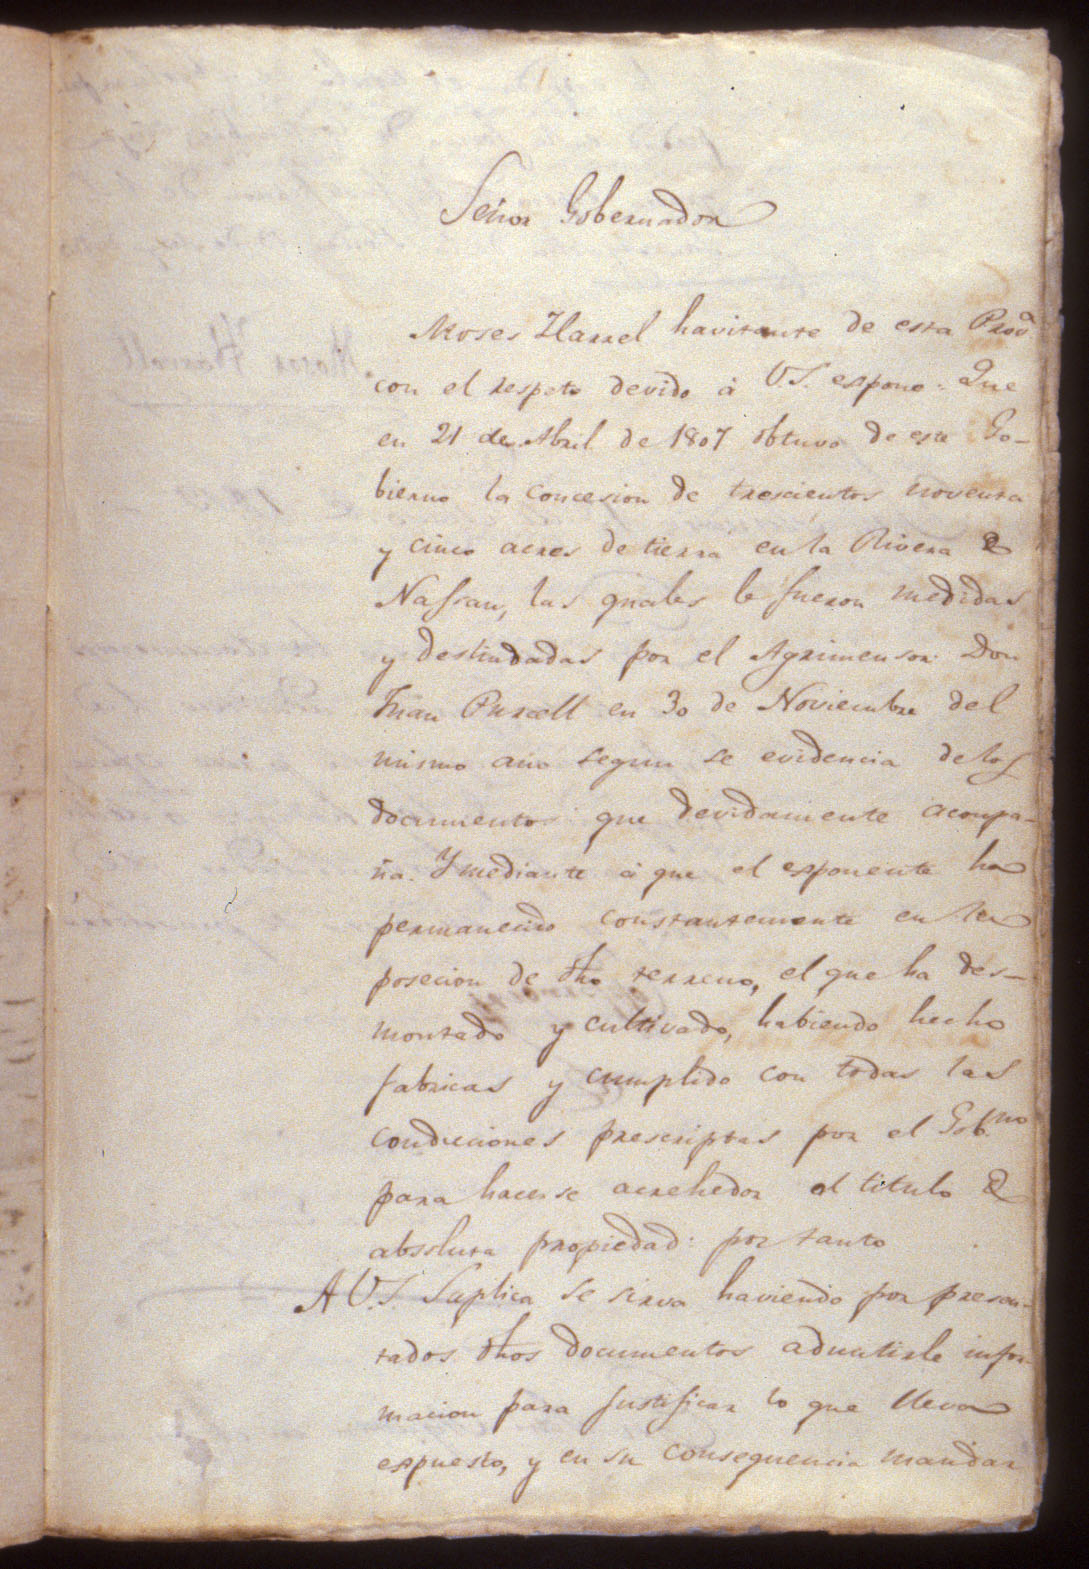 Señor Gobernador
Moses Harrel havitante de esta Prov.a
con el respeto devido à V.S. expone: Que
en 21 de Abril de 1807 obtuvo de este Go-
bierno la Concesion de trescientos noventa
y cinco acres de tierra en la Rivera de
Nassau, las quales le fueron medidas
y deslindadas por el Agrimensor Don
Juan Purcell en 30 de Noviembre del
mismo año segun se evidencia de los
documentos que devidamente acompa-
ña. Y mediante à que el exponente ha
permanecido constantemente en la
posecion de dho terreno, el que ha des-
montado y cultivado, habiendo hecho
fabricas y cumplido con todas las
condiciones prescriptas por el Gob.no
para hacerse acrehedor al titulo de
absoluta propiedad: por tanto
A V.S. Suplica se sirva haviendo por presen-
tados dhos documentos admitirle infor-
macion para justificar lo que lleva
expuesto, y en su consequencia mandar